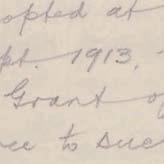 opted at
pt. 1913,
Grant of
ce to suc